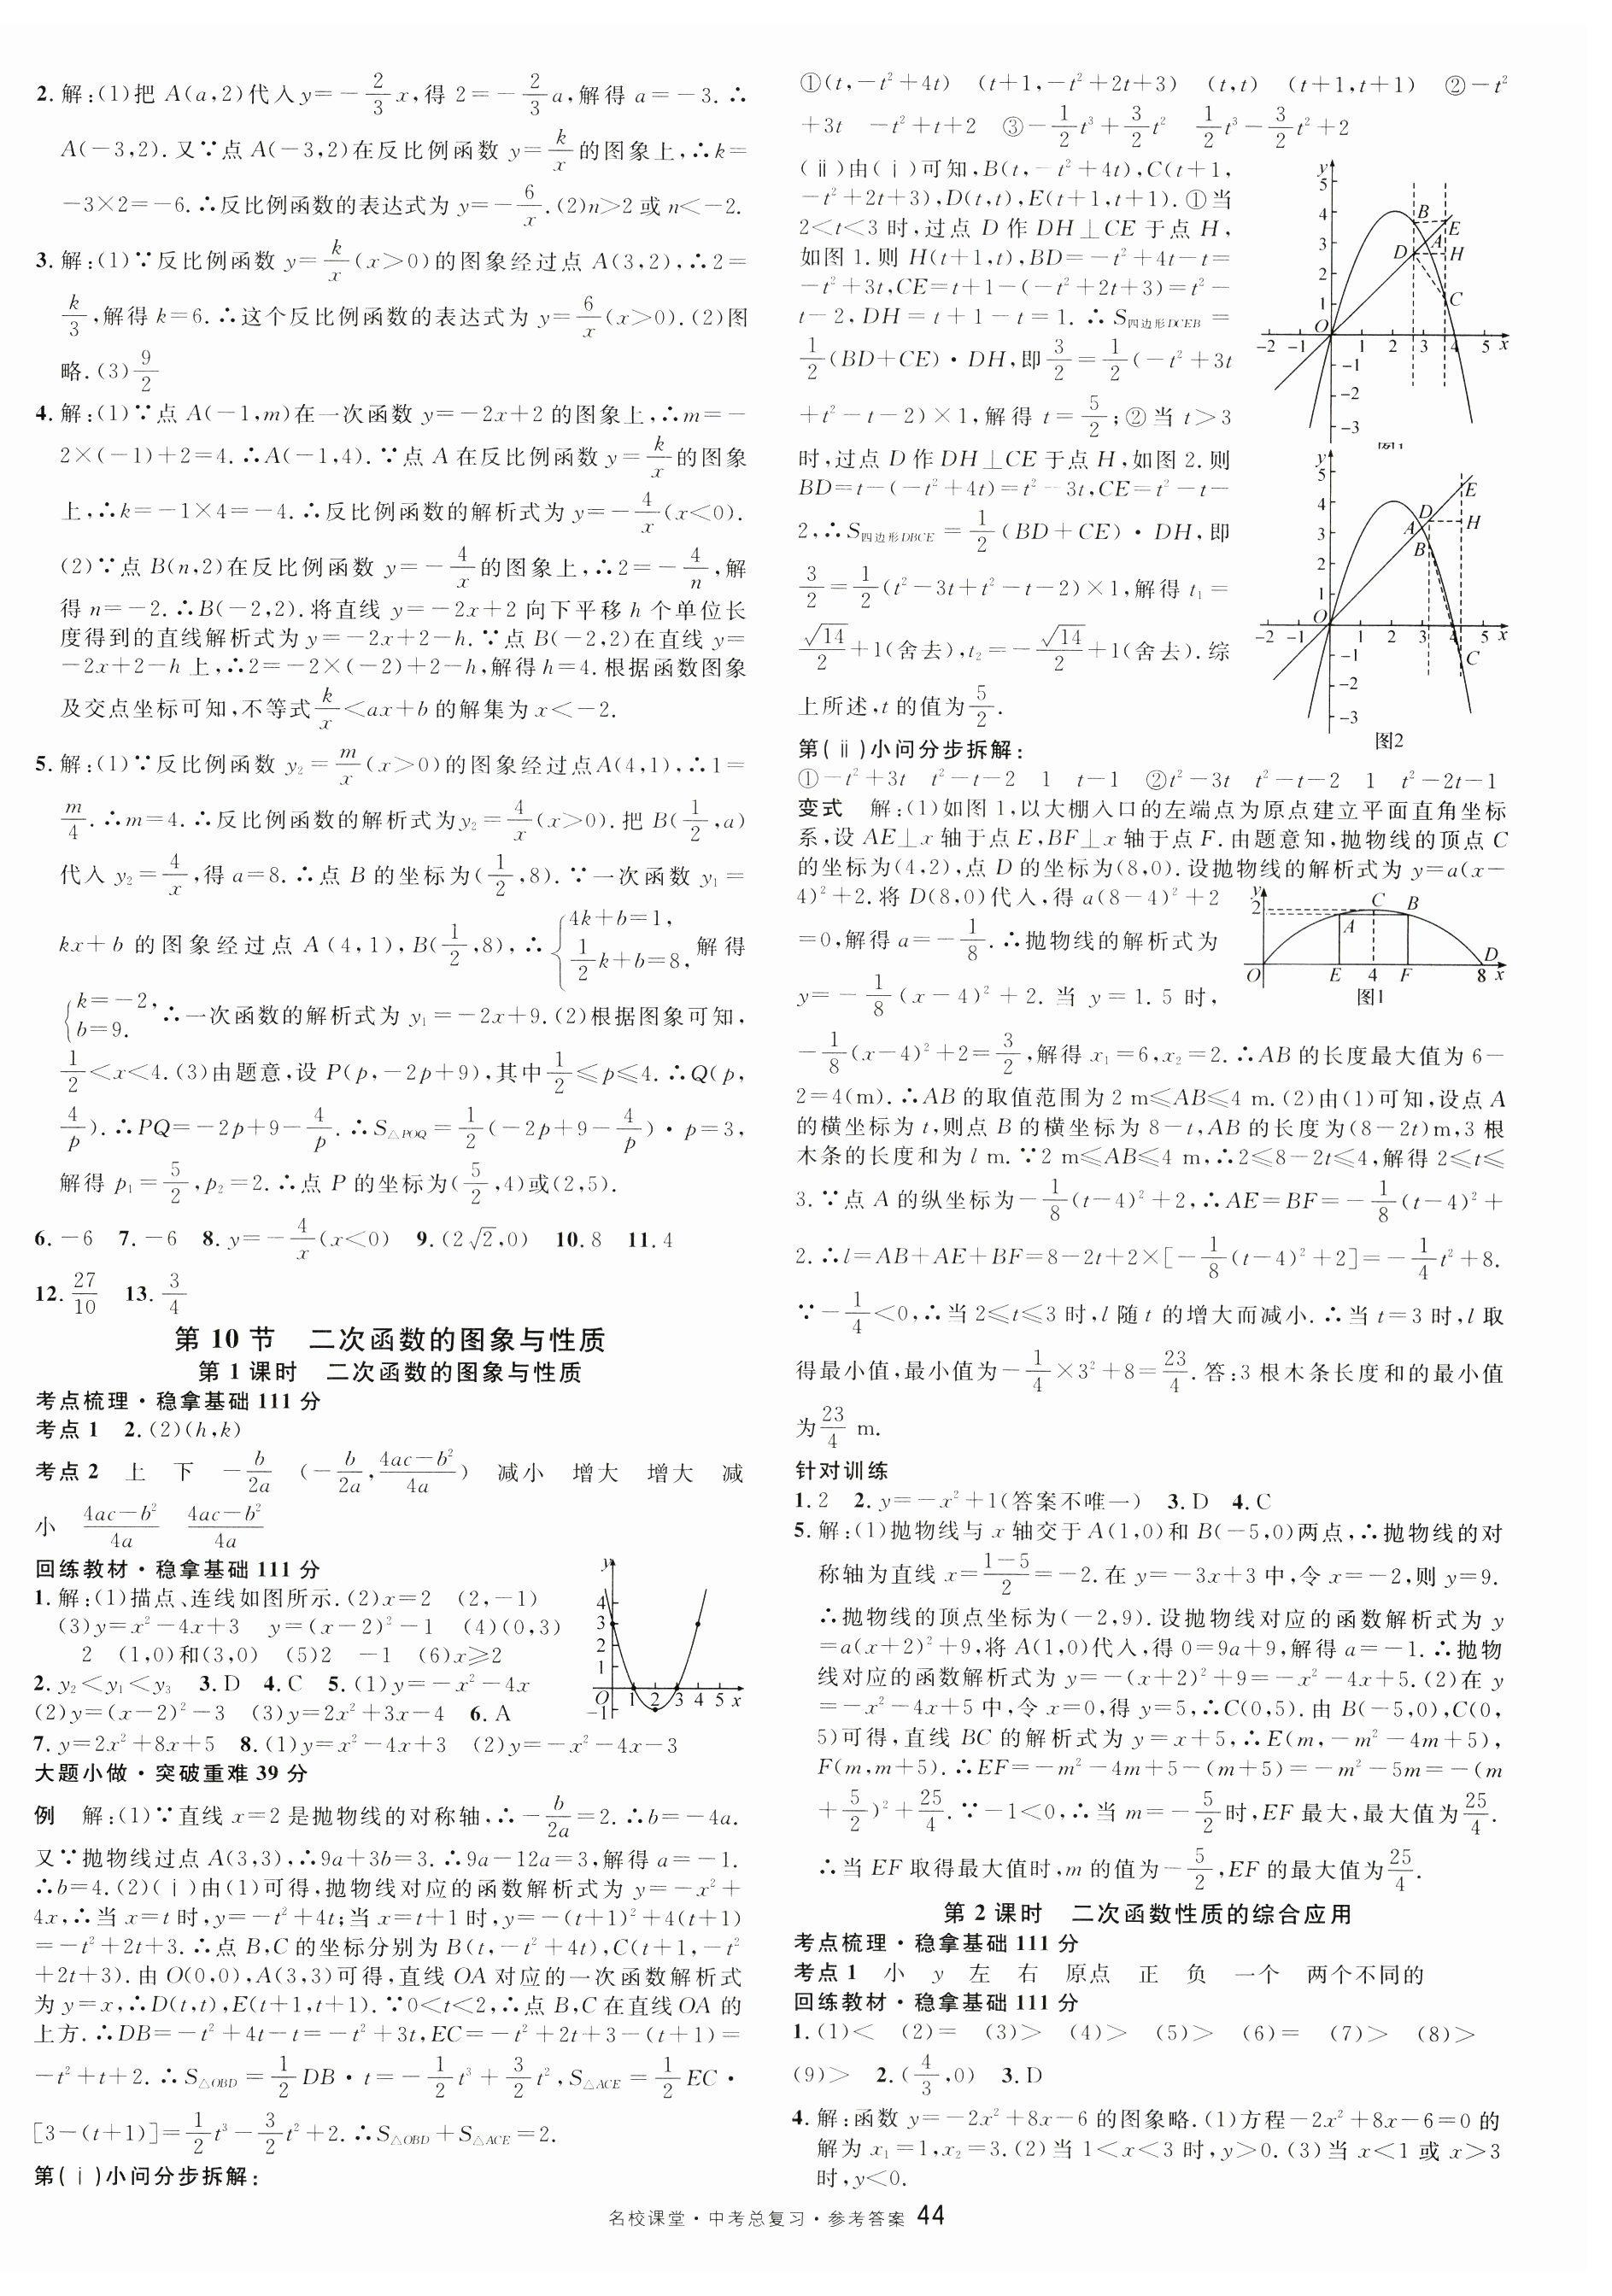 2. 解:(1)把 A(a,2)代入y=-2/3x,得 2=-2/3a,解得 a=-3. ∴
A(-3,2). 又∵点 A(-3,2)在反比例函数 y=k/x的图象上,∴k=
-3×2=-6. ∴反比例函数的表达式为 y=-6/x. (2)n>2 或 n<-2.
3. 解:(1)∵反比例函数 y=k/x(x>0)的图象经过点 A(3,2),∴2=
k/3,解得 k=6. ∴这个反比例函数的表达式为 y=6/x(x>0). (2)图
略. (3)9/2
4. 解:(1)∵点 A(-1,m)在一次函数 y=-2x+2 的图象上,∴m=-
2×(-1)+2=4. ∴A(-1,4). ∵点 A 在反比例函数 y=k/x的图象
上,∴k=-1×4=-4. ∴反比例函数的解析式为 y=-4/x(x<0).
(2)∵点 B(n,2)在反比例函数 y=-4/x的图象上,∴2=-4/n,解
得 n=-2. ∴B(-2,2). 将直线 y=-2x+2 向下平移 h 个单位长
度得到的直线解析式为 y=-2x+2-h. ∵点 B(-2,2)在直线 y=
-2x+2-h 上,∴2=-2×(-2)+2-h,解得 h=4. 根据函数图象
及交点坐标可知,不等式k/x<ax+b 的解集为 x<-2.
5. 解:(1)∵反比例函数 y₂=m/x(x>0)的图象经过点A(4,1),∴1=
m/4. ∴m=4. ∴反比例函数的解析式为y₂=4/x(x>0). 把 B(1/2,a)
代入 y₂=4/x,得 a=8. ∴点 B 的坐标为(1/2,8). ∵一次函数 y₁=
kx+b 的图象经过点 A(4,1),B(1/2,8),∴{4k+b=1, 1/2k+b=8, 解得
{k=-2, b=9. ∴一次函数的解析式为 y₁=-2x+9. (2)根据图象可知,
1/2<x<4. (3)由题意,设 P(p,-2p+9),其中1/2≤p≤4. ∴Q(p,
4/p). ∴PQ=-2p+9-4/p. ∴S△POQ=1/2(-2p+9-4/p)·p=3,
解得 p₁=5/2,p₂=2. ∴点 P 的坐标为(5/2,4)或(2,5).
6. -6 7. -6 8. y=-4/x(x<0) 9. (2√2,0) 10. 8 11. 4
12. 27/10 13. 3/4
第 10 节 二次函数的图象与性质
第 1 课时 二次函数的图象与性质
考点梳理·稳拿基础 111 分
考点 1 2. (2)(h,k)
考点 2 上 下 -b/2a (-b/2a,(4ac-b²)/4a) 减小 增大 增大 减
小 (4ac-b²)/4a (4ac-b²)/4a
回练教材·稳拿基础 111 分
1. 解:(1)描点、连线如图所示. (2)x=2 (2,-1)
(3)y=x²-4x+3 y=(x-2)²-1 (4)(0,3)
2 (1,0)和(3,0) (5)2 -1 (6)x≥2
2. y₂<y₁<y₃ 3. D 4. C 5. (1)y=-x²-4x
(2)y=(x-2)²-3 (3)y=2x²+3x-4 6. A
7. y=2x²+8x+5 8. (1)y=x²-4x+3 (2)y=-x²-4x-3
y
4
3
2
1
O 1 2 3 4 5 x
-1
大题小做·突破重难 39 分
例 解:(1)∵直线 x=2 是抛物线的对称轴,∴-b/2a=2. ∴b=-4a.
又∵抛物线过点 A(3,3),∴9a+3b=3. ∴9a-12a=3,解得 a=-1.
∴b=4. (2)(ⅰ)由(1)可得,抛物线对应的函数解析式为 y=-x²+
4x,∴当 x=t 时,y=-t²+4t;当 x=t+1 时,y=-(t+1)²+4(t+1)
=-t²+2t+3. ∴点 B,C 的坐标分别为 B(t,-t²+4t),C(t+1,-t²
+2t+3). 由 O(0,0),A(3,3)可得,直线 OA 对应的一次函数解析式
为 y=x,∴D(t,t),E(t+1,t+1). ∵0<t<2,∴点 B,C 在直线 OA 的
上方. ∴DB=-t²+4t-t=-t²+3t,EC=-t²+2t+3-(t+1)=
-t²+t+2. ∴S△OBD=1/2DB·t=-1/2t³+3/2t²,S△ACE=1/2EC·
[3-(t+1)]=1/2t³-3/2t²+2. ∴S△OBD+S△ACE=2.
第(ⅰ)小问分步拆解:
①(t,-t²+4t) (t+1,-t²+2t+3) (t,t) (t+1,t+1) ②-t²
+3t -t²+t+2 ③-1/2t³+3/2t² 1/2t³-3/2t²+2
(ⅱ)由(ⅰ)可知,B(t,-t²+4t),C(t+1,
-t²+2t+3),D(t,t),E(t+1,t+1). ①当
2<t<3 时,过点 D 作 DH⊥CE 于点 H,
如图 1. 则 H(t+1,t),BD=-t²+4t-t=
-t²+3t,CE=t+1-(-t²+2t+3)=t²-
t-2,DH=t+1-t=1. ∴S四边形DCEB=
1/2(BD+CE)·DH,即3/2=1/2(-t²+3t
+t²-t-2)×1,解得 t=5/2;②当 t>3
时,过点 D 作 DH⊥CE 于点 H,如图 2. 则
BD=t-(-t²+4t)=t²-3t,CE=t²-t-
2,∴S四边形DBCE=1/2(BD+CE)·DH,即
3/2=1/2(t²-3t+t²-t-2)×1,解得 t₁=
√14/2+1(舍去),t₂=-√14/2+1(舍去). 综
上所述,t 的值为5/2.
y
5
4 B E
3 A
D H
2
1 C
O
-2 -1 1 2 3 4 5 x
-1
-2
-3
y
5 E
4 D H
3 A
B
2
1
O
-2 -1 1 2 3 4 5 x
-1 C
-2
-3
图2
第(ⅱ)小问分步拆解:
①-t²+3t t²-t-2 1 t-1 ②t²-3t t²-t-2 1 t²-2t-1
变式 解:(1)如图 1,以大棚入口的左端点为原点建立平面直角坐标
系,设 AE⊥x 轴于点 E,BF⊥x 轴于点 F. 由题意知,抛物线的顶点 C
的坐标为(4,2),点 D 的坐标为(8,0). 设抛物线的解析式为 y=a(x-
4)²+2. 将 D(8,0)代入,得 a(8-4)²+2
=0,解得 a=-1/8. ∴抛物线的解析式为
y=-1/8(x-4)²+2. 当 y=1.5 时,
y
2 C B
A
D
O E 4 F 8 x
图1
-1/8(x-4)²+2=3/2,解得 x₁=6,x₂=2. ∴AB 的长度最大值为 6-
2=4(m). ∴AB 的取值范围为 2 m≤AB≤4 m. (2)由(1)可知,设点 A
的横坐标为 t,则点 B 的横坐标为 8-t,AB 的长度为(8-2t)m,3 根
木条的长度和为 l m. ∵2 m≤AB≤4 m,∴2≤8-2t≤4,解得 2≤t≤
3. ∵点 A 的纵坐标为-1/8(t-4)²+2,∴AE=BF=-1/8(t-4)²+
2. ∴l=AB+AE+BF=8-2t+2×[-1/8(t-4)²+2]=-1/4t²+8.
∵-1/4<0,∴当 2≤t≤3 时,l 随 t 的增大而减小. ∴当 t=3 时,l 取
得最小值,最小值为-1/4×3²+8=23/4. 答:3 根木条长度和的最小值
为23/4 m.
针对训练
1. 2 2. y=-x²+1(答案不唯一) 3. D 4. C
5. 解:(1)抛物线与 x 轴交于 A(1,0)和 B(-5,0)两点,∴抛物线的对
称轴为直线 x=(1-5)/2=-2. 在 y=-3x+3 中,令 x=-2,则 y=9.
∴抛物线的顶点坐标为(-2,9). 设抛物线对应的函数解析式为 y
=a(x+2)²+9,将 A(1,0)代入,得 0=9a+9,解得 a=-1. ∴抛物
线对应的函数解析式为 y=-(x+2)²+9=-x²-4x+5. (2)在 y
=-x²-4x+5 中,令 x=0,得 y=5,∴C(0,5). 由 B(-5,0),C(0,
5)可得,直线 BC 的解析式为 y=x+5,∴E(m,-m²-4m+5),
F(m,m+5). ∴EF=-m²-4m+5-(m+5)=-m²-5m=-(m
+5/2)²+25/4. ∵-1<0,∴当 m=-5/2时,EF 最大,最大值为25/4.
∴当 EF 取得最大值时,m 的值为-5/2,EF 的最大值为25/4.
第 2 课时 二次函数性质的综合应用
考点梳理·稳拿基础 111 分
考点 1 小 y 左 右 原点 正 负 一个 两个不同的
回练教材·稳拿基础 111 分
1. (1)< (2)= (3)> (4)> (5)> (6)= (7)> (8)>
(9)> 2. (4/3,0) 3. D
4. 解:函数 y=-2x²+8x-6 的图象略. (1)方程-2x²+8x-6=0 的
解为 x₁=1,x₂=3. (2)当 1<x<3 时,y>0. (3)当 x<1 或 x>3
时,y<0.
名校课堂·中考总复习·参考答案 44